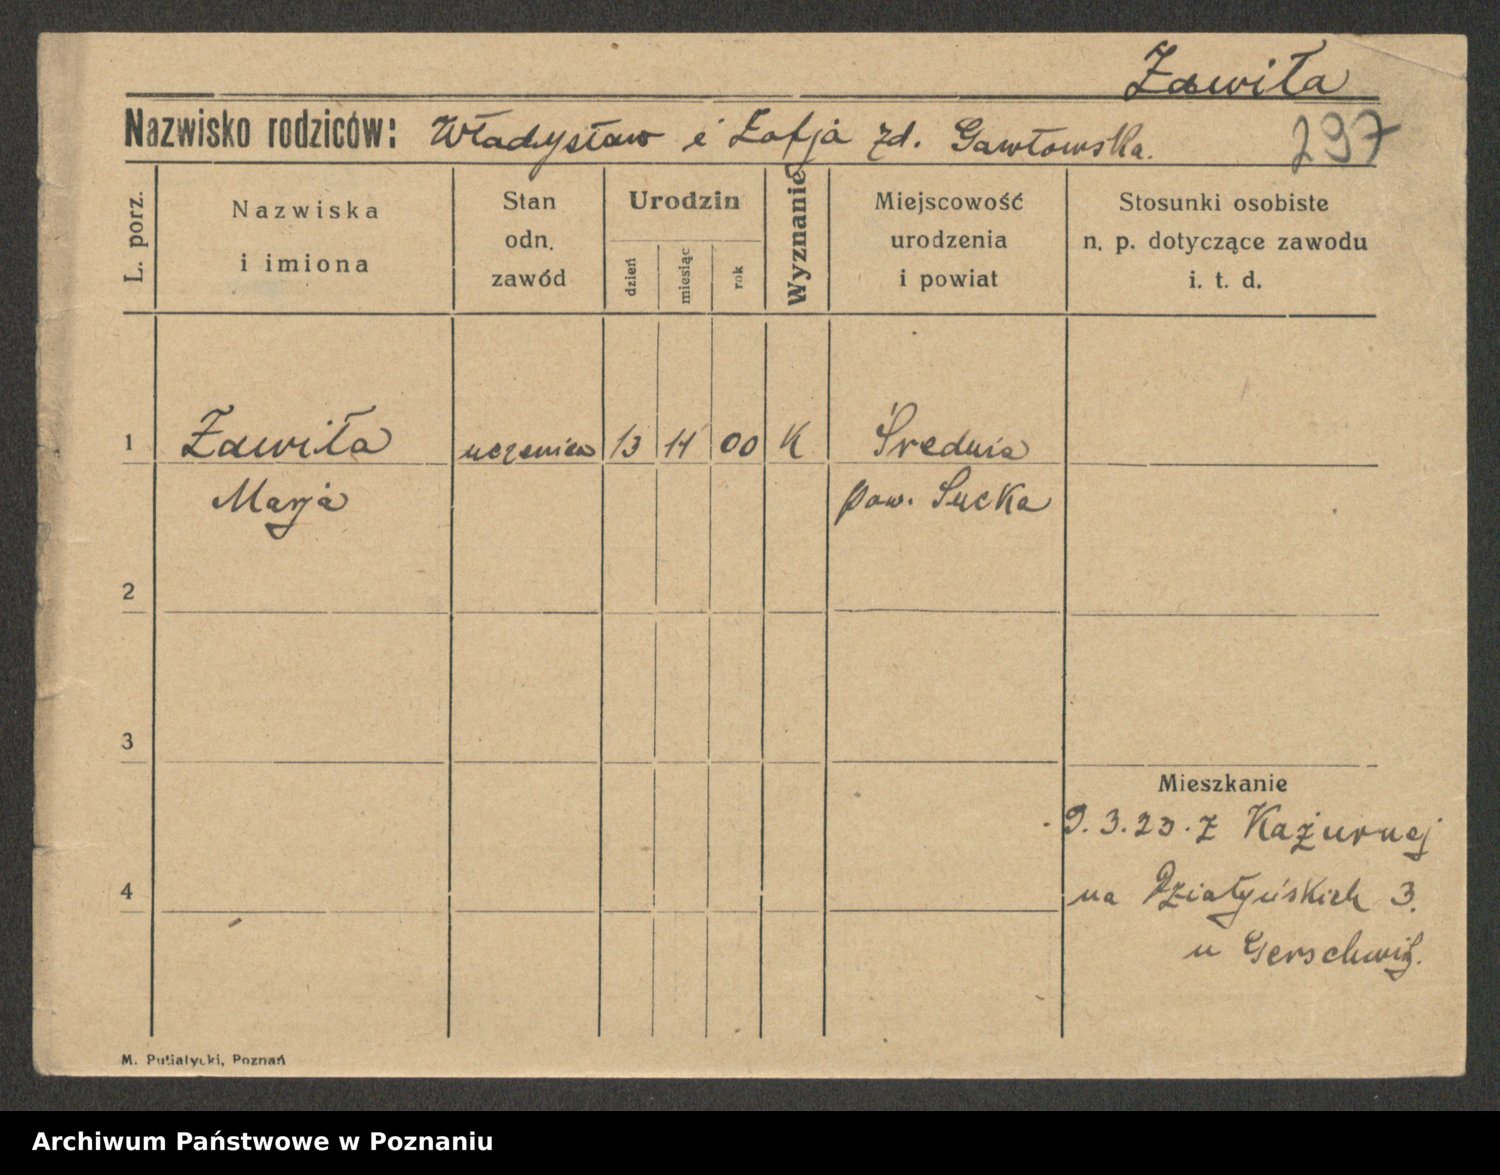 Zawiła
Nazwisko rodziców: Władysław i Zofja zd. Gawłowska.
297
L. porz.
Nazwiska
i imiona
Stan
odn.
zawód
Urodzin
dzień
miesiąc
rok
Wyznanie
Miejscowość
urodzenia
i powiat
Stosunki osobiste
n. p. dotyczące zawodu
i. t. d.
1 Zawiła uczenica 13 11 00 K Średnia
Marja pow. Sucka
2
3
Mieszkanie
9.3.23. z Każurnej
4
na Działyńskich 3.
u Gerschwitz.
M. Putiatycki, Poznań
Archiwum Państwowe w Poznaniu